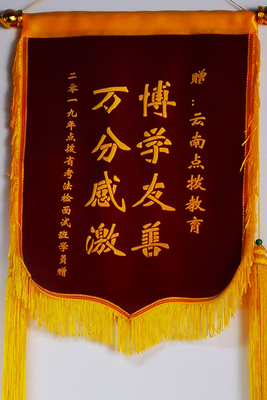 赠：云南点拨教育
博学友善
万分感激
二零一九年点拨省考法检面试班学员赠